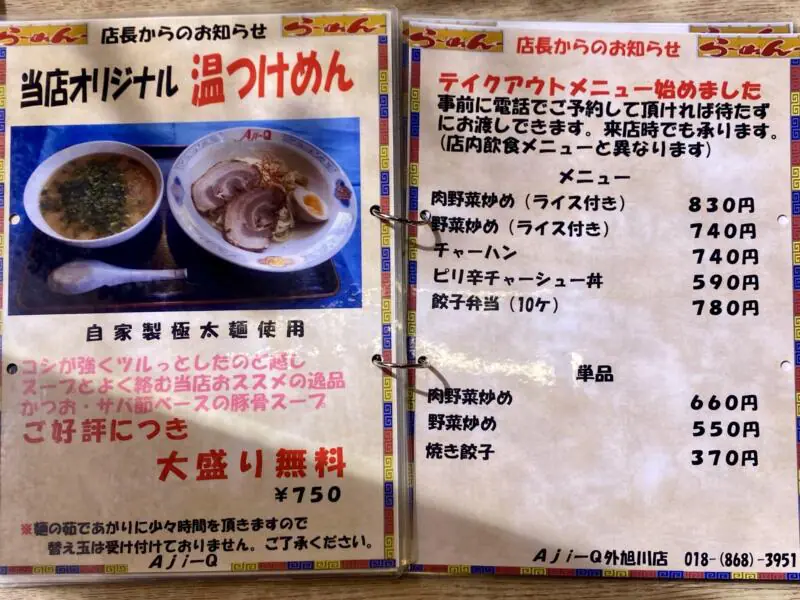 らーめん 店長からのお知らせ らーめん
当店オリジナル 温つけめん
Aji-Q
自家製極太麺使用
コシが強くツルっとしたのど越し
スープとよく絡む当店おススメの逸品
かつお・サバ節ベースの豚骨スープ
ご好評につき
大盛り無料
¥750
※麺の茹であがりに少々時間を頂きますので
替え玉は受け付けておりません。ご了承ください。
Aji-Q
らーめん 店長からのお知らせ らーめん
テイクアウトメニュー始めました
事前に電話でご予約して頂ければ待たず
にお渡しできます。来店時でも承ります。
(店内飲食メニューと異なります)
メニュー
肉野菜炒め(ライス付き) 830円
野菜炒め(ライス付き) 740円
チャーハン 740円
ピリ辛チャーシュー丼 590円
餃子弁当(10ケ) 780円
単品
肉野菜炒め 660円
野菜炒め 550円
焼き餃子 370円
Aji-Q外旭川店 018-(868)-3951